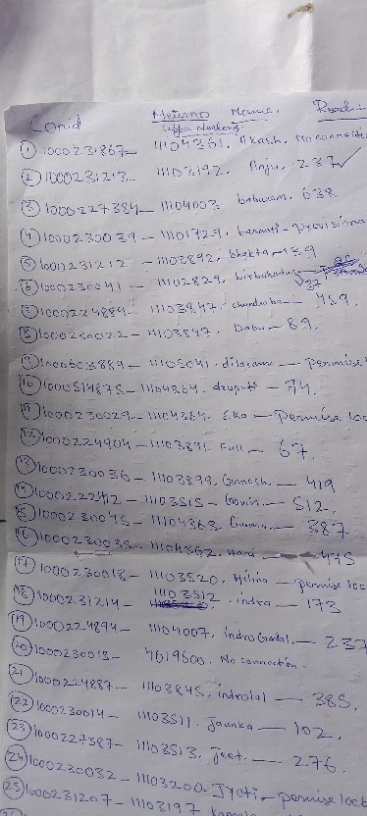 Conid Meterno Menuca. Readin
① 1000231867- 11104361. Akash. No connectio
② 1000231213- 11103192. Anju. 237 ✓
③ 1000227384- 11104003 baburam. 638
④ 1000230039- 11101729. - provisiona
⑤ 1000231212 - 11103892, bhakta - 139
⑥ 1000230041 - 11102829. 37
⑦ 1000224889- 11103847. - 759.
⑧ 1000230022- 11103897. Dabu - 89.
⑨ 1000603889- 11105041. dilaram - permise l
⑩ 1000514875- 11104264. drupati - 74.
⑪ 1000230029- 11104364. Eka - permise loc
⑫ 1000224904- 11103891. Full - 67.
⑬ 1000230036- 11103899. Gannesh. - 419
⑭ 1000222242- 11103515- Govin. - 512.
⑮ 1000230045- 11104363. - 387
⑯ 1000230035- 11104362. Hard - 475
⑰ 1000230018- 11103520. - permise loc
⑱ 1000231214- 11103512 indra - 173
⑲ 1000224894- 11104007. - 237
⑳ 1000230015- 4619500. No connection.
21 1000224887- 11103845. indrolal - 385.
22 1000230014- 11103511. Jaunka - 102.
23 1000227387- 11103513. Jeet. - 276.
24 1000230032- 11103200. Jyoti, - permise loc
25 1000231207- 11103197